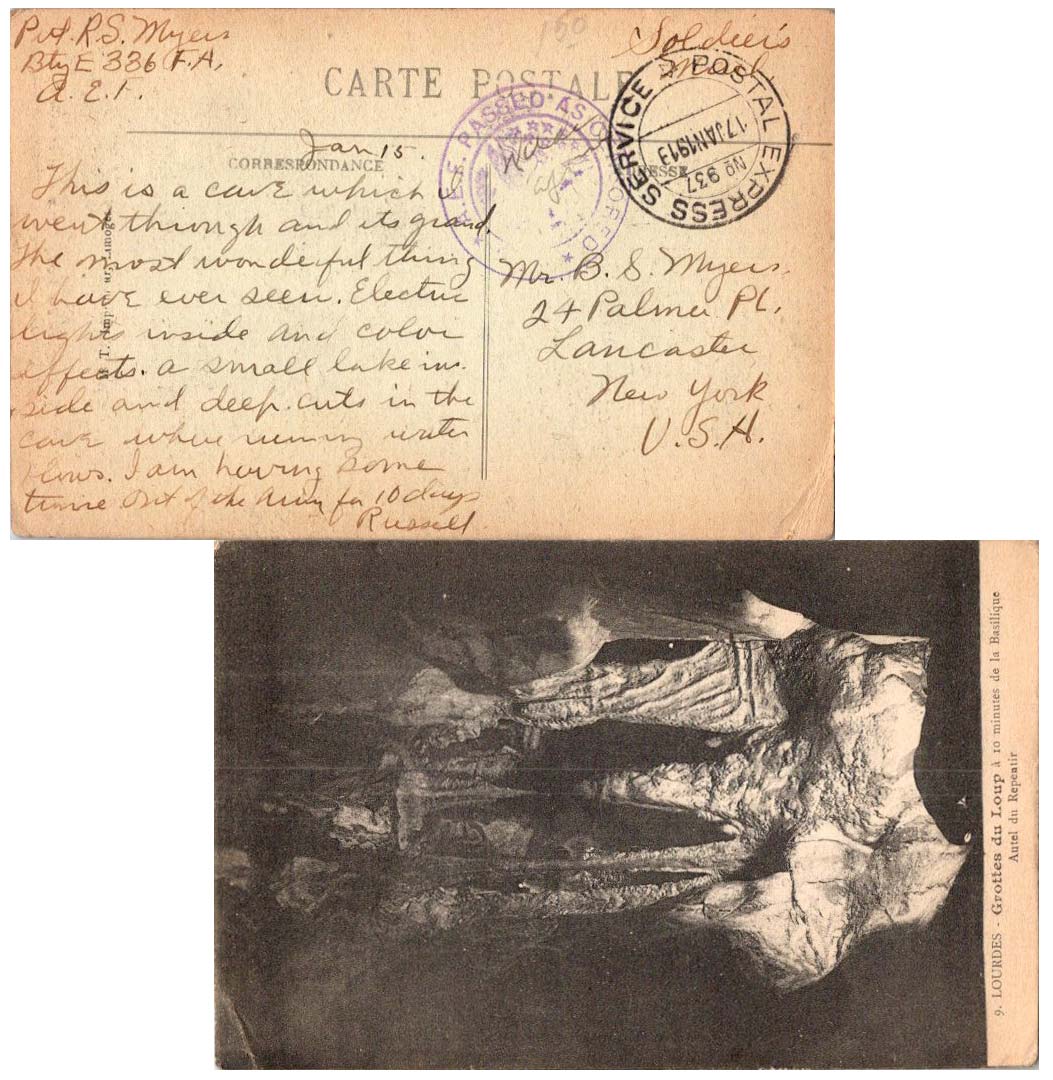 Pvt. R.S. Myers
Bty E 336 F.A.
A.E.F.
150
Soldier's
Mail
CARTE POSTALE
A.E.F. PASSED AS CENSORED
POSTAL EXPRESS SERVICE
17 JAN 1919
No 937
CORRESPONDANCE
Jan 15.
This is a cave which I
went through and its grand.
The most wonderful thing
I have ever seen. Electric
lights inside and color
effects. a small lake in
side and deep cuts in the
cave where running water
flows. I am having some
time out of the Army for 10 days
Russell
Mr. B. S. Myers.
24 Palmer Pl.
Lancaster
New York
U.S.A.
9. LOURDES - Grottes du Loup à 10 minutes de la Basilique
Autel du Repentir